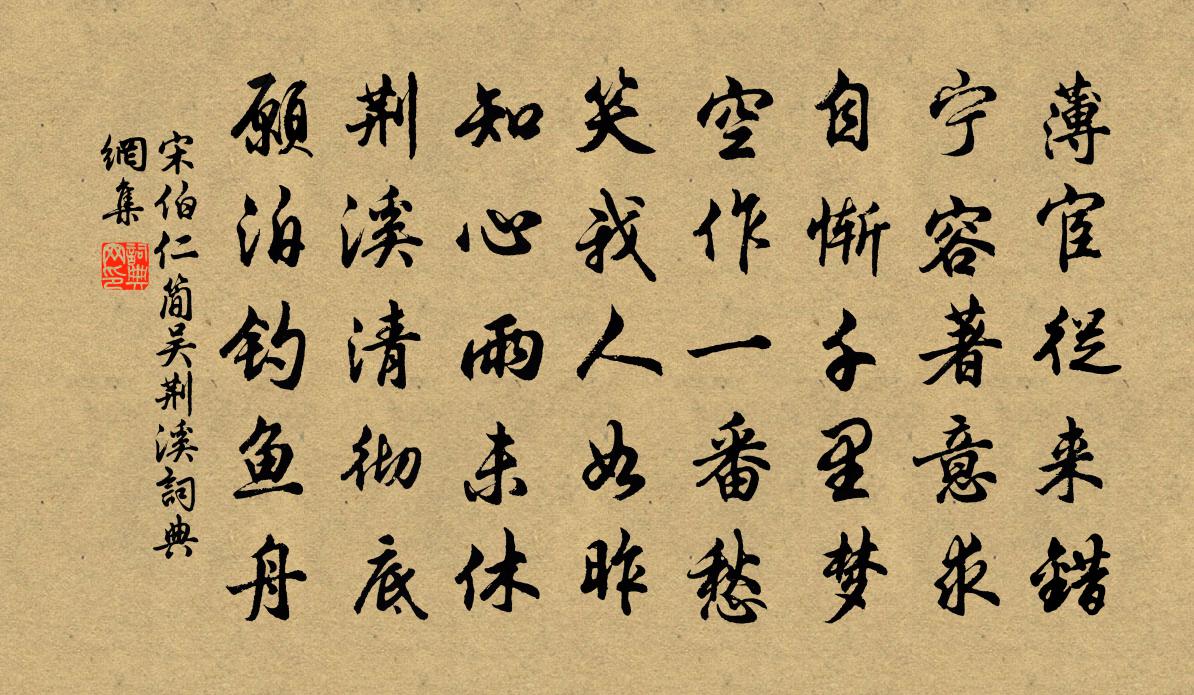 薄宦従来錯
宁容著意求
自慚千里梦
空作一番愁
笑我人如昨
知心雨未休
荆溪清彻底
願泊钓鱼舟
宋伯仁简吴荆溪詞典
網集
詞典网印